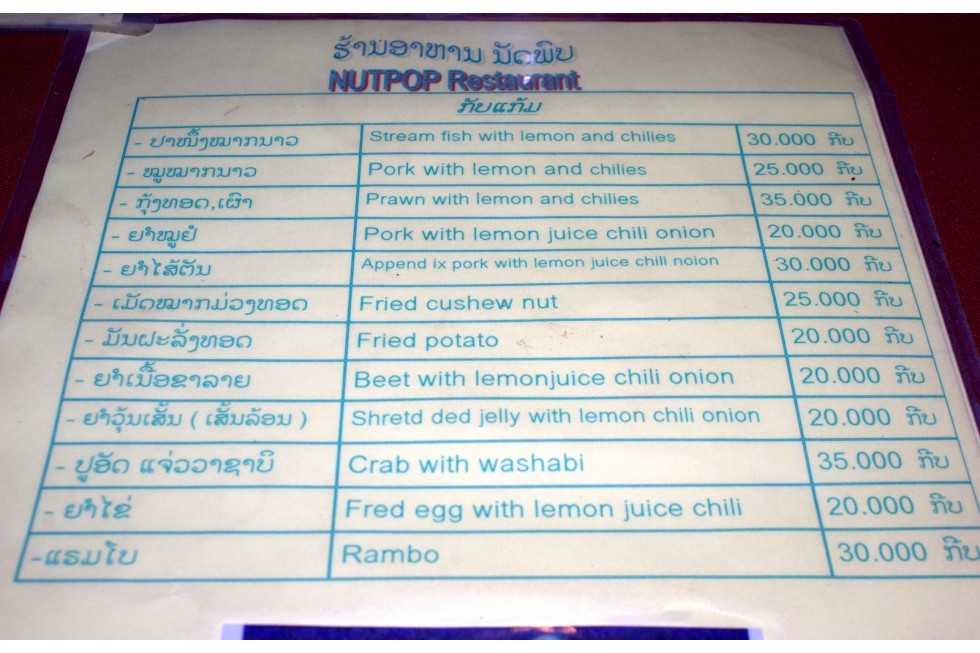 ຮ້ານອາຫານ ນັດພົບ
NUTPOP Restaurant
ກັບແກ້ມ
- ປາໜຶ້ງໝາກນາວ Stream fish with lemon and chilies 30.000 ກີບ
- ໝູໝາກນາວ Pork with lemon and chilies 25.000 ກີບ
- ກຸ້ງທອດ,ເຜົາ Prawn with lemon and chilies 35.000 ກີບ
- ຍຳໝູຢໍ Pork with lemon juice chili onion 20.000 ກີບ
- ຍຳໄສ້ຕັນ Append ix pork with lemon juice chili noion 30.000 ກີບ
- ເມັດໝາກມ່ວງທອດ Fried cushew nut 25.000 ກີບ
- ມັນຝະລັ່ງທອດ Fried potato 20.000 ກີບ
- ຍຳເນື້ອຊາລາຍ Beet with lemonjuice chili onion 20.000 ກີບ
- ຍຳວຸ້ນເສັ້ນ ( ເສັ້ນລ້ອນ ) Shretd ded jelly with lemon chili onion 20.000 ກີບ
- ປູອັດ ແຈ່ວວາຊາບິ Crab with washabi 35.000 ກີບ
- ຍຳໄຂ່ Fred egg with lemon juice chili 20.000 ກີບ
-ແຣມໂບ Rambo 30.000 ກີບ